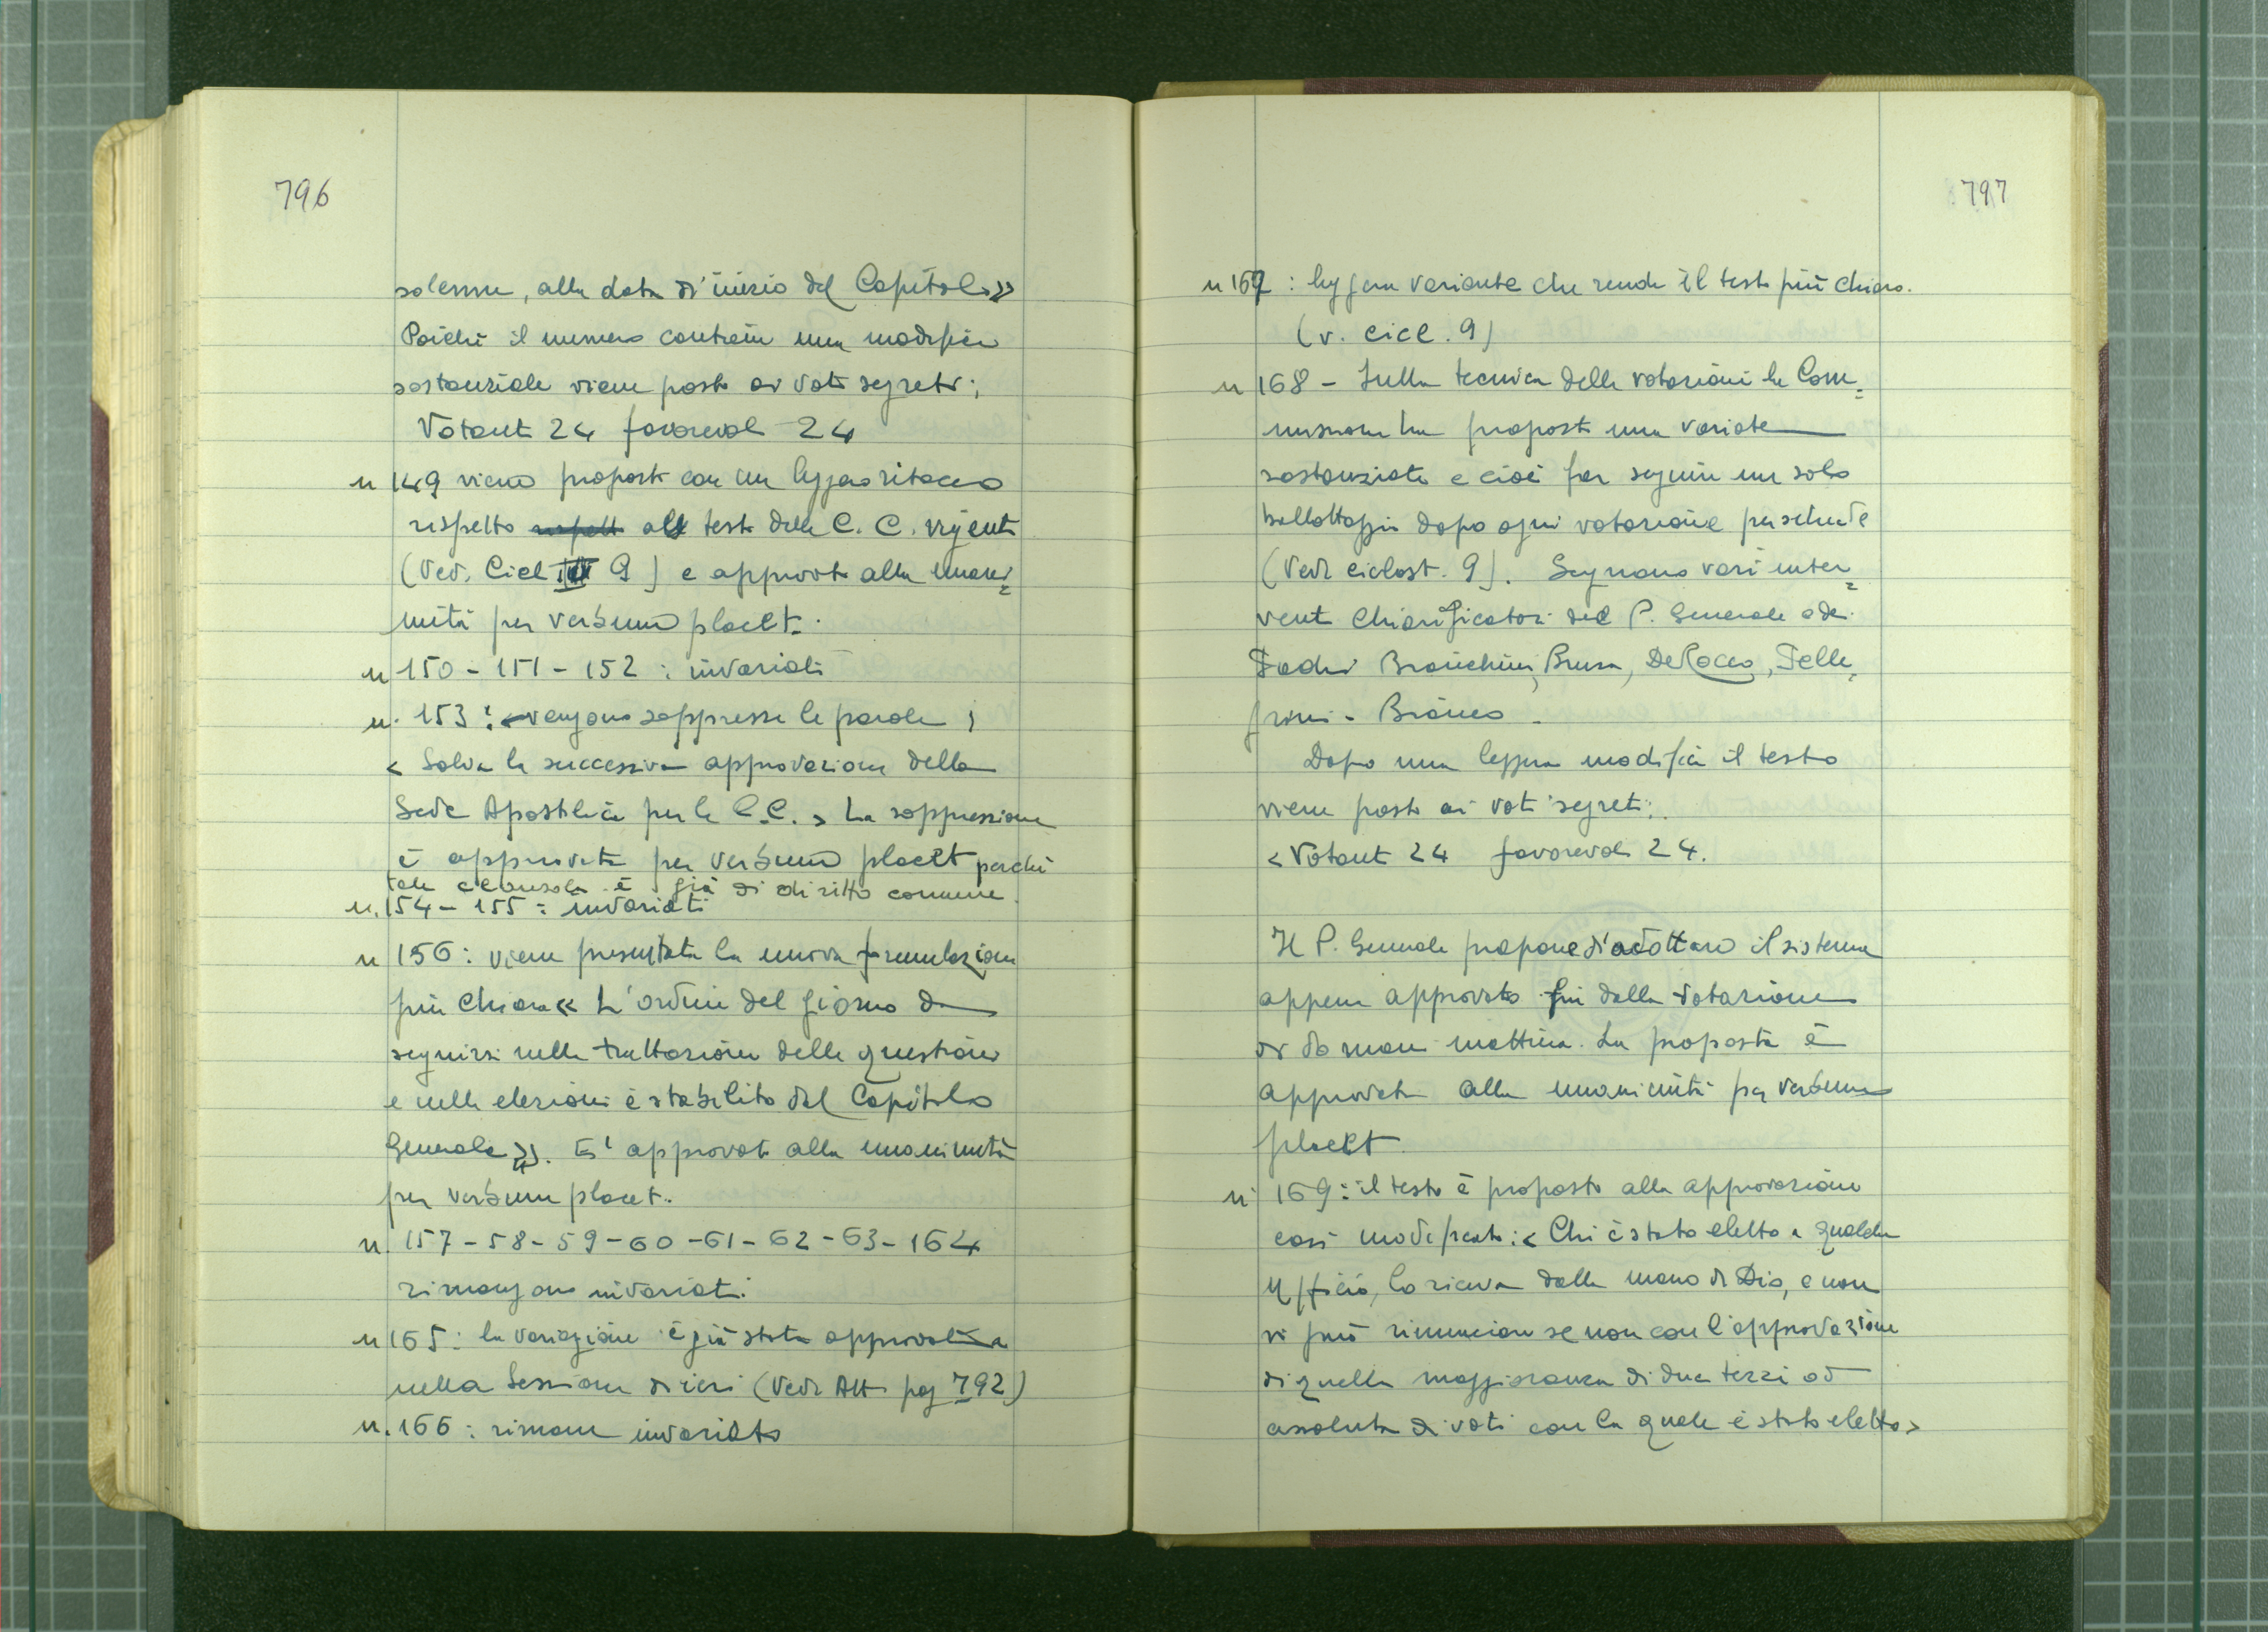 796
solenne, alla data d'inizio del Capitolo»
Poiché il numero contiene una modifica
sostanziale viene posto ai voti segreti;
Votanti 24 favorevoli 24
n 149 viene proposto con un leggero ritocco
rispetto al testo delle C. C. vigenti
(Ved. Cicl 9) e approvato alla unani=
mità per verbum placet.
n 150 - 151 - 152 : invariati
n. 153 : vengono soppresse le parole ;
< Salva la successiva approvazione della
Sede Apostolica per le C.C. > La soppressione
è approvata per verbum placet perché
tale clausola è già di diritto comune.
n. 154 - 155 : invariati
n 156 : viene presentata la nuova formulazione
più chiara « L'ordine del giorno da
seguirsi nella trattazione delle questioni
e nelle elezioni è stabilito dal Capitolo
Generale ». E' approvato alla unanimità
per verbum placet.
n. 157 - 58 - 59 - 60 - 61 - 62 - 63 - 164
rimangono invariati.
n 165 : la variazione è già stata approvata
nella Sessione di ieri (Vedi Atti pag 792)
n. 166 : rimane invariato
797
n 167 : leggera variante che rende il testo più chiaro.
(v. cicl. 9)
n 168 - Sulla tecnica delle votazioni la Com=
missione ha proposto una variante
sostanziale e cioè far seguire un solo
ballottaggio dopo ogni votazione per schede
(Vedi ciclost. 9). Seguono vari inter=
venti chiarificatori del P. Generale e dei
Padri Bianchini, Brusa, De Rocco, Pelle=
grini - Bianco.
Dopo una leggera modifica il testo
viene posto ai voti segreti:
< Votanti 24 favorevoli 24.
Il P. Generale propone d'adottare il sistema
appena approvato fin dalla votazione
di domani mattina. La proposta è
approvata alla unanimità per verbum
placet
n 169 : il testo è proposto alla approvazione
così modificato : < Chi è stato eletto a qualche
Ufficio, lo riceva dalla mano di Dio, e non
vi può rinunciare se non con l'approvazione
di quella maggioranza di due terzi od
assoluta di voti con la quale è stato eletto >